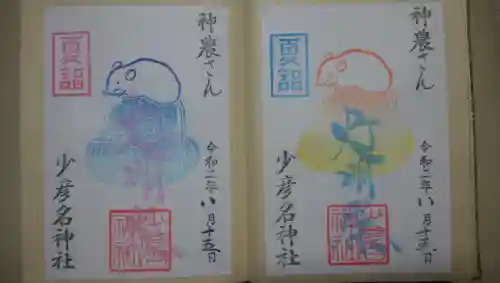 神農さん
夏詣
令和二年八月十五日
少彦名神社
神農さん
夏詣
令和二年八月十五日
少彦名神社